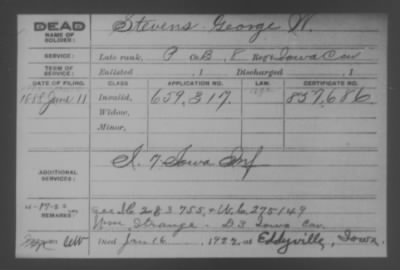 DEAD
NAME OF SOLDIER:
Stevens George W.
SERVICE:
Late rank, P Co. B, 8 Reg't Iowa Cav
TERM OF SERVICE:
Enlisted , 1 Discharged , 1
DATE OF FILING. CLASS. APPLICATION NO. LAW. CERTIFICATE NO.
1888 June 11 Invalid, 659,317. 837,686
Widow,
Minor,
ADDITIONAL SERVICES:
I. 7 Iowa Inf
REMARKS:
See I.C. 283755, & W.C. 275149
Wm Strange - D. 3 Iowa Cav.
Died Jan 16 1922, at Eddyville, Iowa.